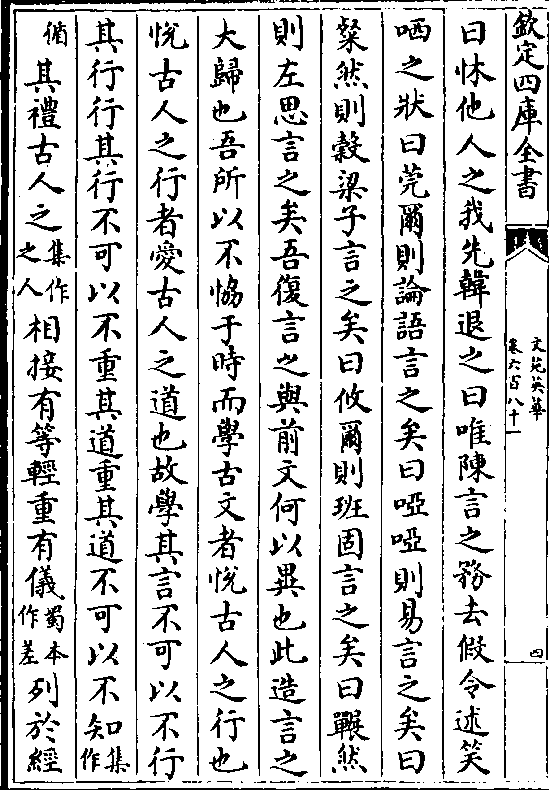 欽定四庫全書
文苑英華
卷六百八十一
四
曰怵他人之我先韓退之曰唯陳言之務去假令述笑
哂之狀曰莞爾則論語言之矣曰啞啞則易言之矣曰
粲然則榖梁子言之矣曰攸爾則班固言之矣曰囅然
則左思言之矣吾復言之與前文何以異也此造言之
大歸也吾所以不恊于時而學古文者悅古人之行也
悅古人之行者愛古人之道也故學其言不可以不行
其行行其行不可以不重其道重其道不可以不知集作
循其禮古人之集作之人相接有等輕重有儀蜀本作差列於經